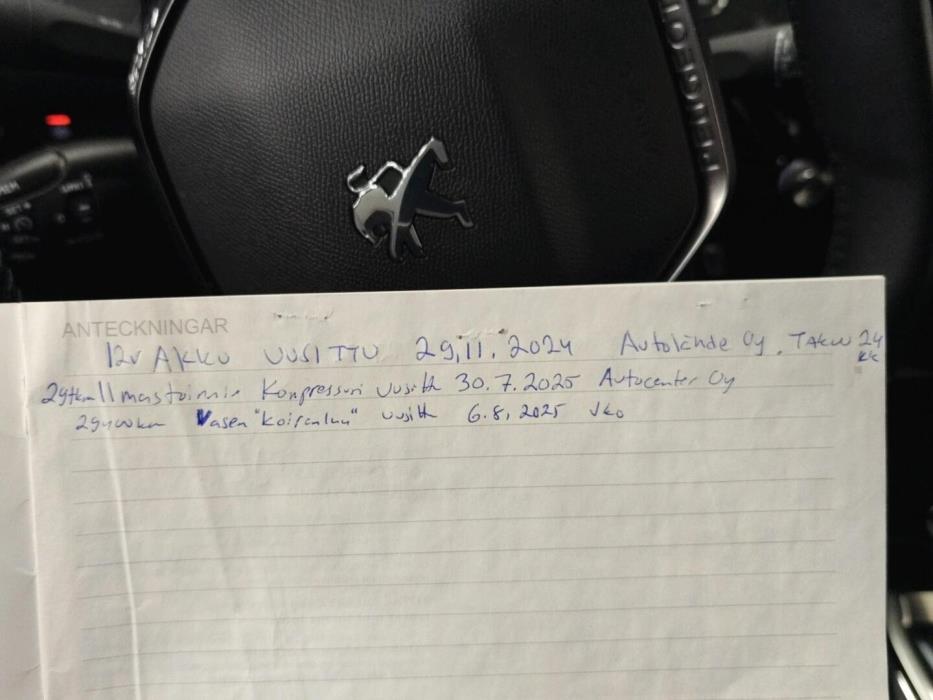 PEUGEOT
MEM
SET +
LIMIT
ANTECKNINGAR
12v AKKU UUSITTU 29.11.2024 Autolände Oy. TAKUU 24
kk
29tkm Ilmastoinnin Kompressori uusittu 30.7.2025 Autocenter Oy
Vasen "koiranluu" uusittu 6.8.2025 JKo